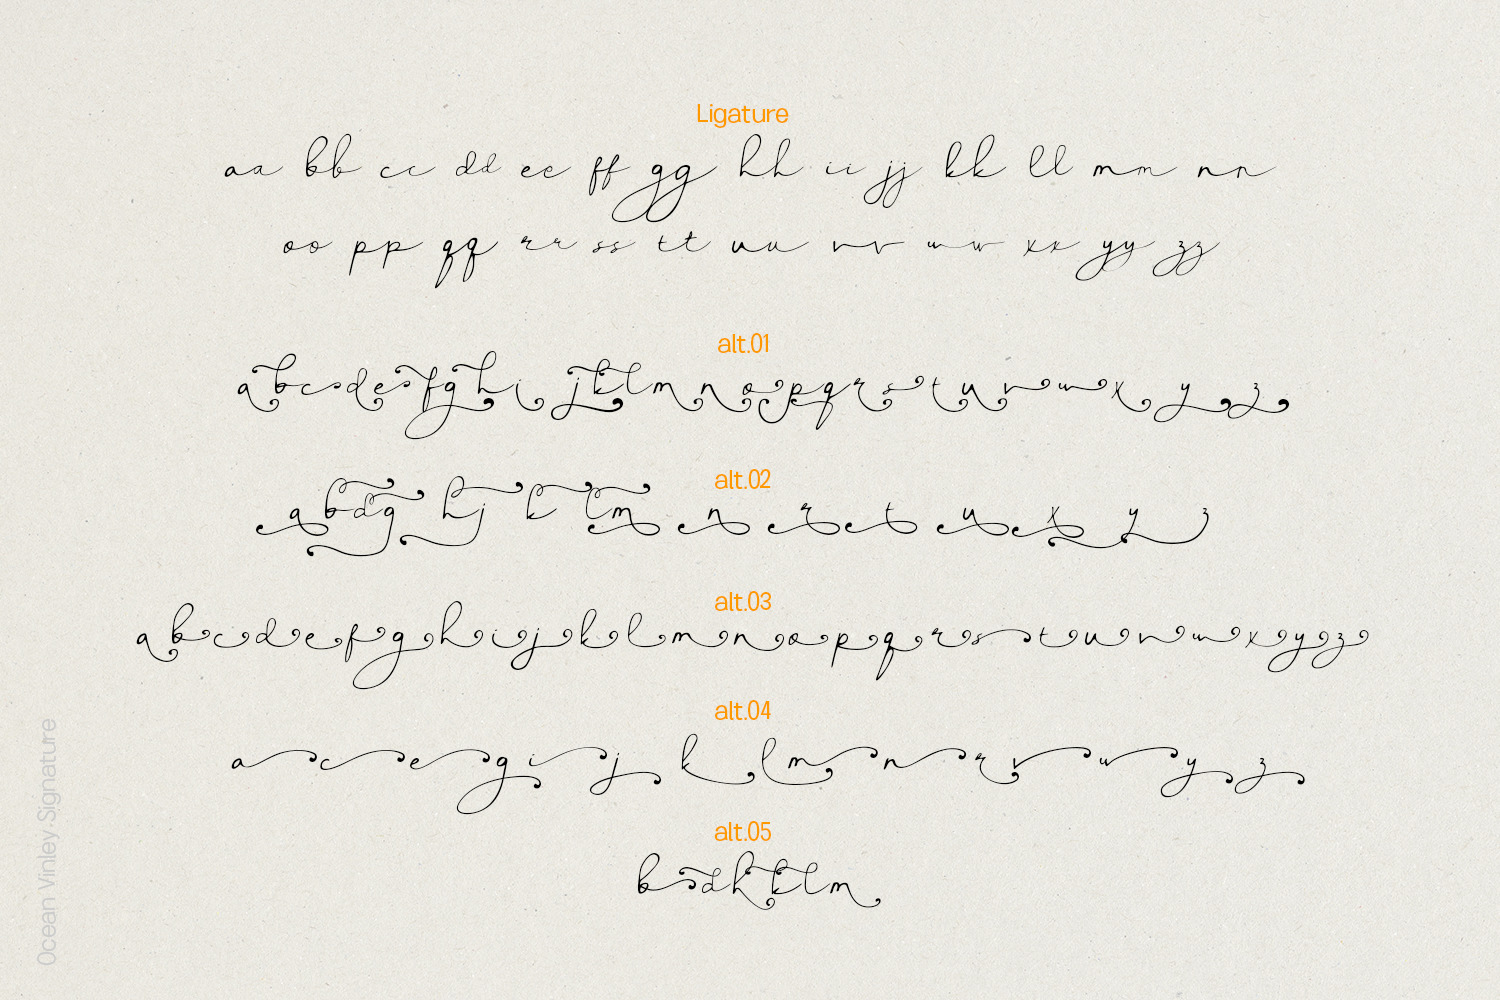 Ligature
aa bb cc dd ee ff gg hh ii jj kk ll mm nn
oo pp qq rr ss tt uu vv ww xx yy zz
alt.01
abcdefghijklmnopqrstuvwxyz
alt.02
abdg hj k lm n r t u x y z
alt.03
abcdefghijklmnopqrstuvwxyz
alt.04
acegijklmnrvwyz
alt.05
bdhklm
Ocean Vinley Signature